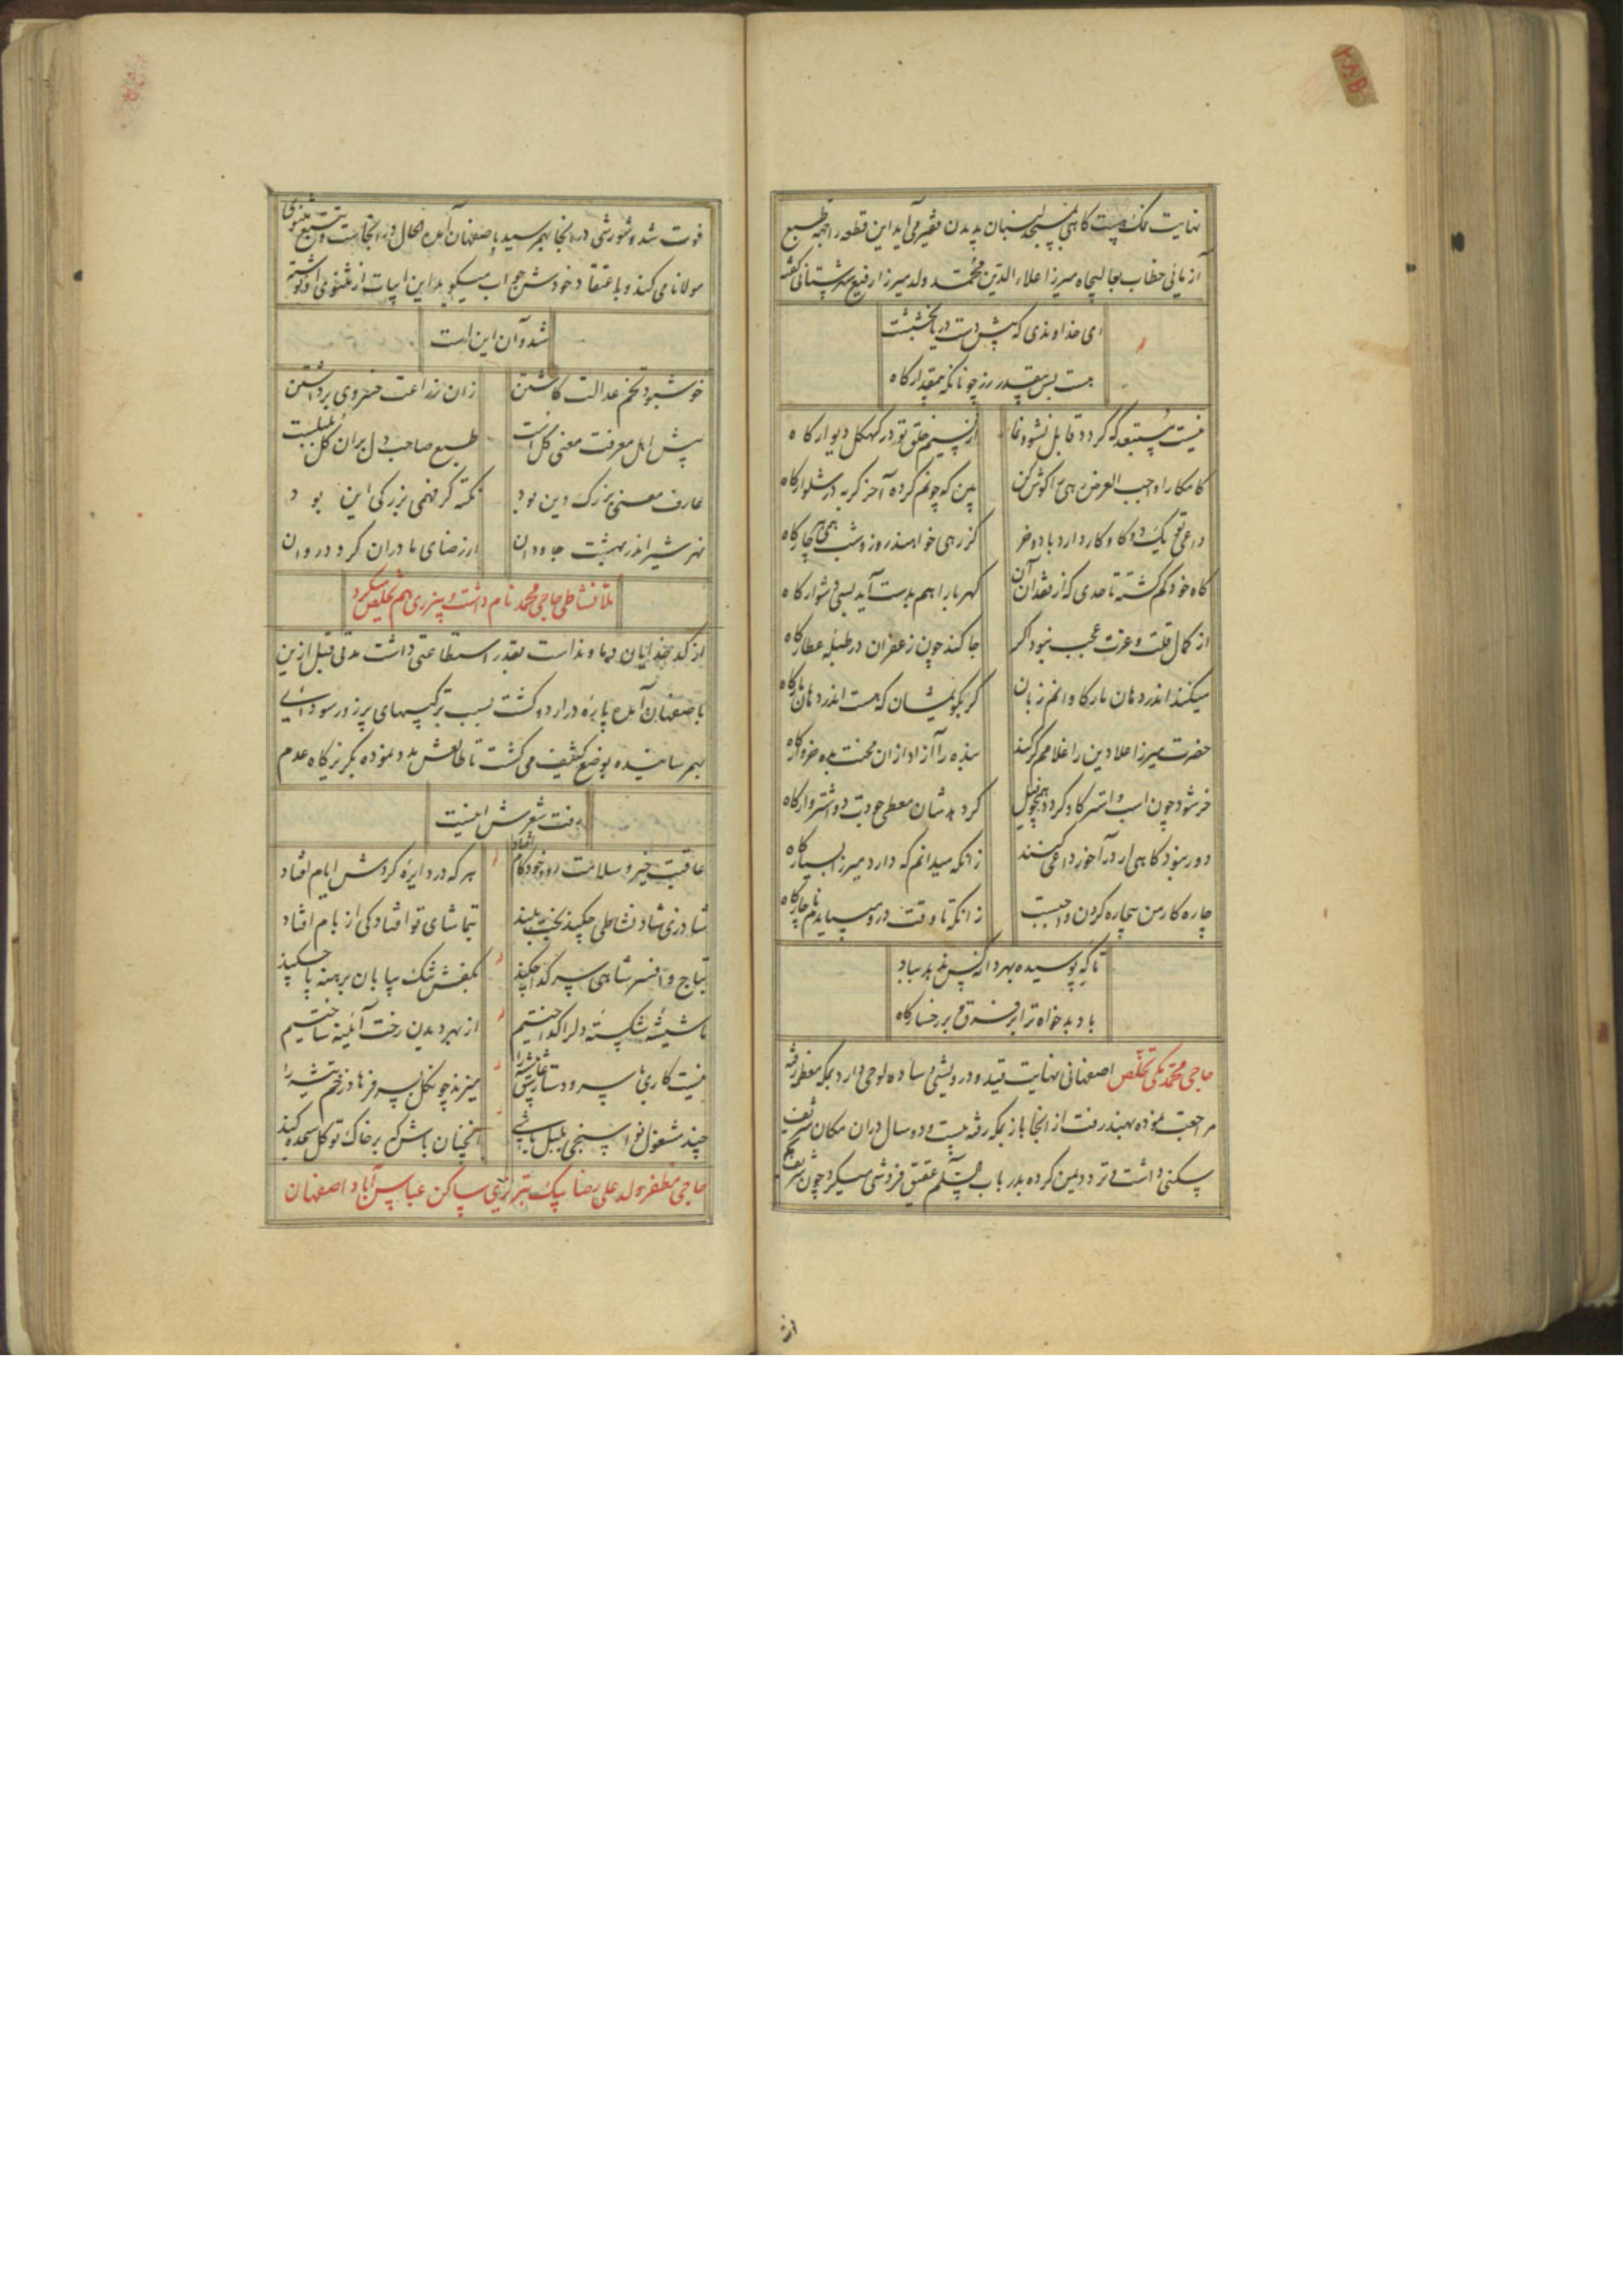 نهایت نمک هست کاهی بدیدن فقیر می آید این قطعه را جهة طبع
آزمائی خطاب بعالیجاه میرزا علاء الدین محمد ولد میرزا رفیع شهرستانی گفته
ای خداوندی که پیش دست دریا بخششت
هست بس بیقدر زر چونانکه بیمقدار کاه
نیست مستبعد که گردد قابل نشو و نما
از نسیم خلق تو در کهکل دیوار کاه
کامکارا واجب العرض رهی را گوش کن
بین که چونم کرده آخر گربه در شلوار کاه
داعی تو یک دو گاو کار دارد با دو خر
کز رهی خواهند روز و شب همی هر چار کاه
کاه خود کم گشته تا حدی که از فقدان آن
کهربا را هم بدست آید بسی دشوار کاه
از کمال قلت و عزت عجب نبود اگر
جا کند چون زعفران در طبله عطار کاه
میکنند اندر دهان مار کاوانم زبان
گر بگویمشان که هست اندر دهان مار کاه
حضرت میرزا علا دین را غلامم گر کند
بنده را آزاد ازان محنت بده خروار کاه
خر شود چون اسب و استر گاو گردد همچو فیل
گر دهدشان معطی جودت دو اشتروار کاه
دور نبود کاهی ار در آخور داعی کنند
زانکه میدانم که دارد میرزا بسیار کاه
چاره کار من بیچاره کردن واجبست
زانکه تا وقت درو میبایدم ناچار کاه
تا که پوسیده بهر دانگی نرخ بد بباد
باد بدخواه ترا بر فرق و بر رخسار کاه
حاجی محمد مکی تخلص اصفهانی نهایت قید و درویشی و ساده لوحی دارد بمکه معظمه رفته
مراجعت نموده بهند رفت از آنجا باز بمکه رفته بیست و دو سال دران مکان شریف
سکنی داشت و تردد یمن کرده بدر باب السلم عقیق فروشی میکرد چون شریف
از
فوت شد و شورشی در آنجا بهمرسید باصفهان آمده الحال در آنجاست و تتبع مثنوی
مولانا می کند و باعتقاد خودش جواب میگوید این ابیات از مثنوی او نوشته
شد و آن این است
خوش بود تخم عدالت کاشتن
زان زراعت خسروی برداشتن
پیش اهل معرفت معنی گل است
طبع صاحب دل بران گل بلبلست
عارف معنی بزرگ دین بود
نکته گر فهمی بزرگی این بود
نهر شیر اندر بهشت جاودان
از رضای مادران گردد روان
ملا نشاطی حاجی محمد نام داشت و پنرری هم تخلص میکرد
از کدخدایان دماوند است بقدر استطاعتی داشت مدتی قبل ازین
باصفهان آمده پاره در اردو گشت بسبب ترکیبهای پرزور سودائی
بهمرسانیده بوضع کثیف می گشت تا طالعش مدد نموده بگریزگاه عدم
رفت شعرش اینست
عاقبت خیر و سلامت رود خود کام افتاد
هر که در دایره گردش ایام افتاد
شادزی شاد نشاطی چکند بخت بلند
بتماشای تو افتاد کی از بام افتاد
بتاج و افسر شاهی سر گدا چکند
بکفش تنک بیابان برهنه پا چکند
ما شیشه شکسته دل را گداختیم
از بهر دیدن رخت آئینه ساختیم
نیست کاری با سر و دستار پستی عاشق را
میزند چون گل بسر فرهاد زخم تیشه را
چند مشغول نواسنجی بلبل باشی
آنچنان باش که بر خاک تو گل سجده کند
حاجی مظفر ولد علیرضا بیک تبریزی ساکن عباس آباد اصفهان